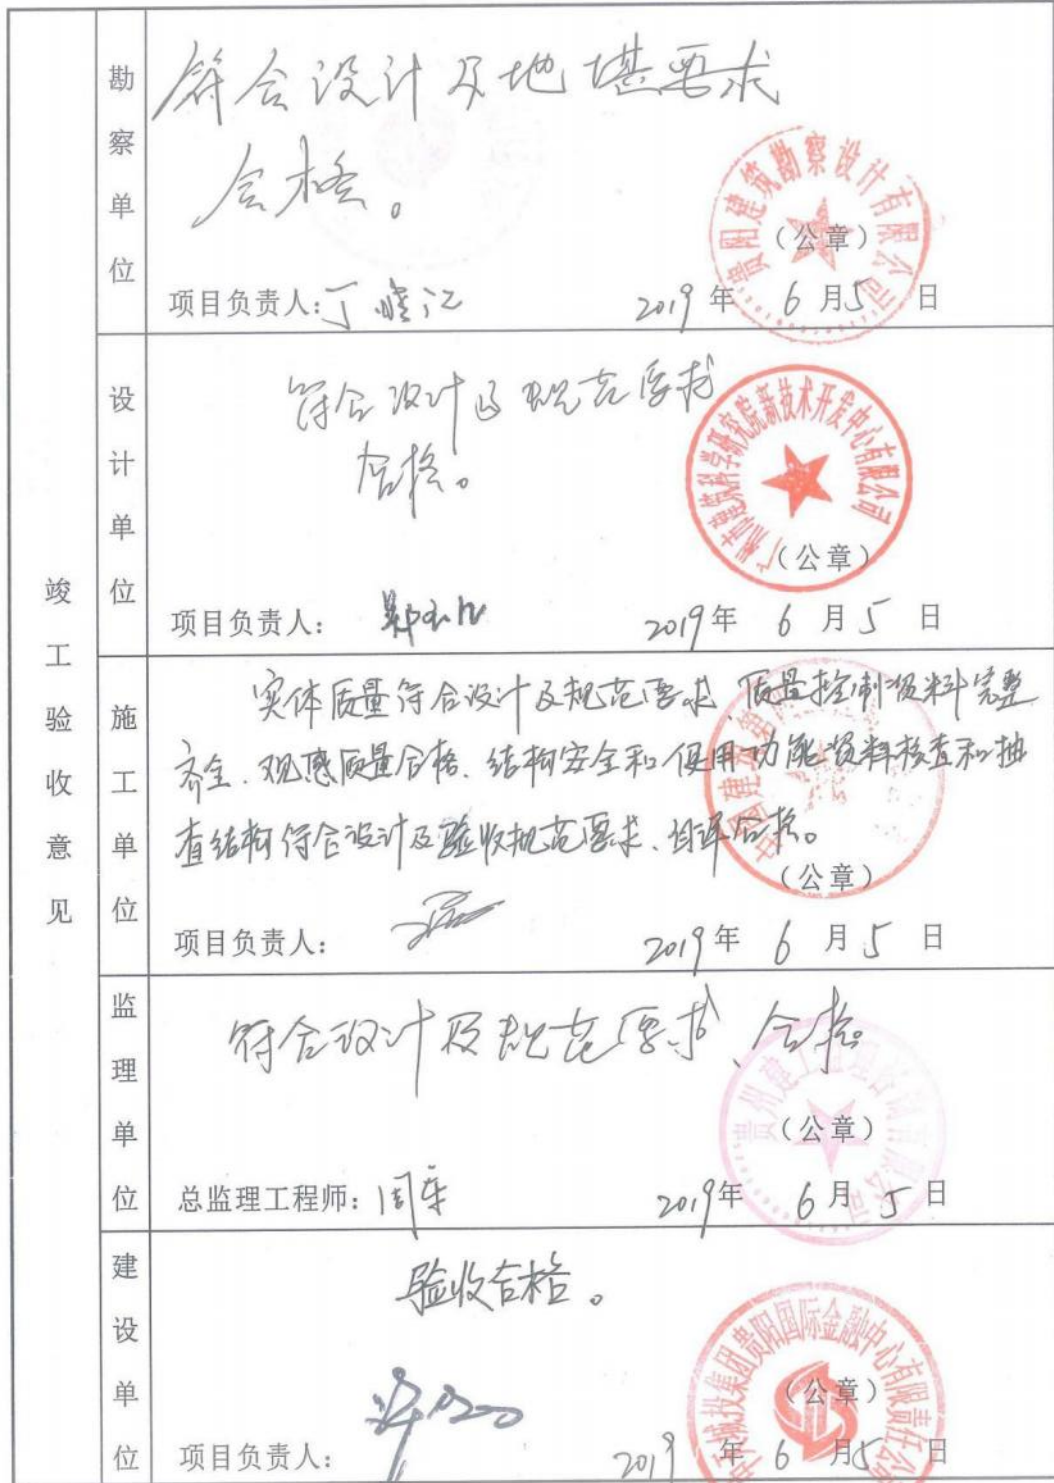 竣工验收意见
勘察单位
符合设计及地堪要求
合格。
贵阳建筑勘察设计有限公司
(公章)
项目负责人:丁
2019年 6月5日
设计单位
符合设计及规范要求
合格。
广州市建筑科学研究院新技术开发中心有限公司
(公章)
项目负责人:
2019年 6月5日
施工单位
实体质量符合设计及规范要求、质量控制资料完整
齐全、观感质量合格、结构安全和使用功能资料核查和抽
查结构符合设计及验收规范要求、自评合格。
中国建筑第
(公章)
项目负责人:
2019年 6月5日
监理单位
符合设计及规范要求、合格
贵州建工监理咨询有限公司
(公章)
总监理工程师:周
2019年 6月5日
建设单位
验收合格。
中天城投集团贵阳国际金融中心有限责任公
(公章)
项目负责人:
2019年 6月5日